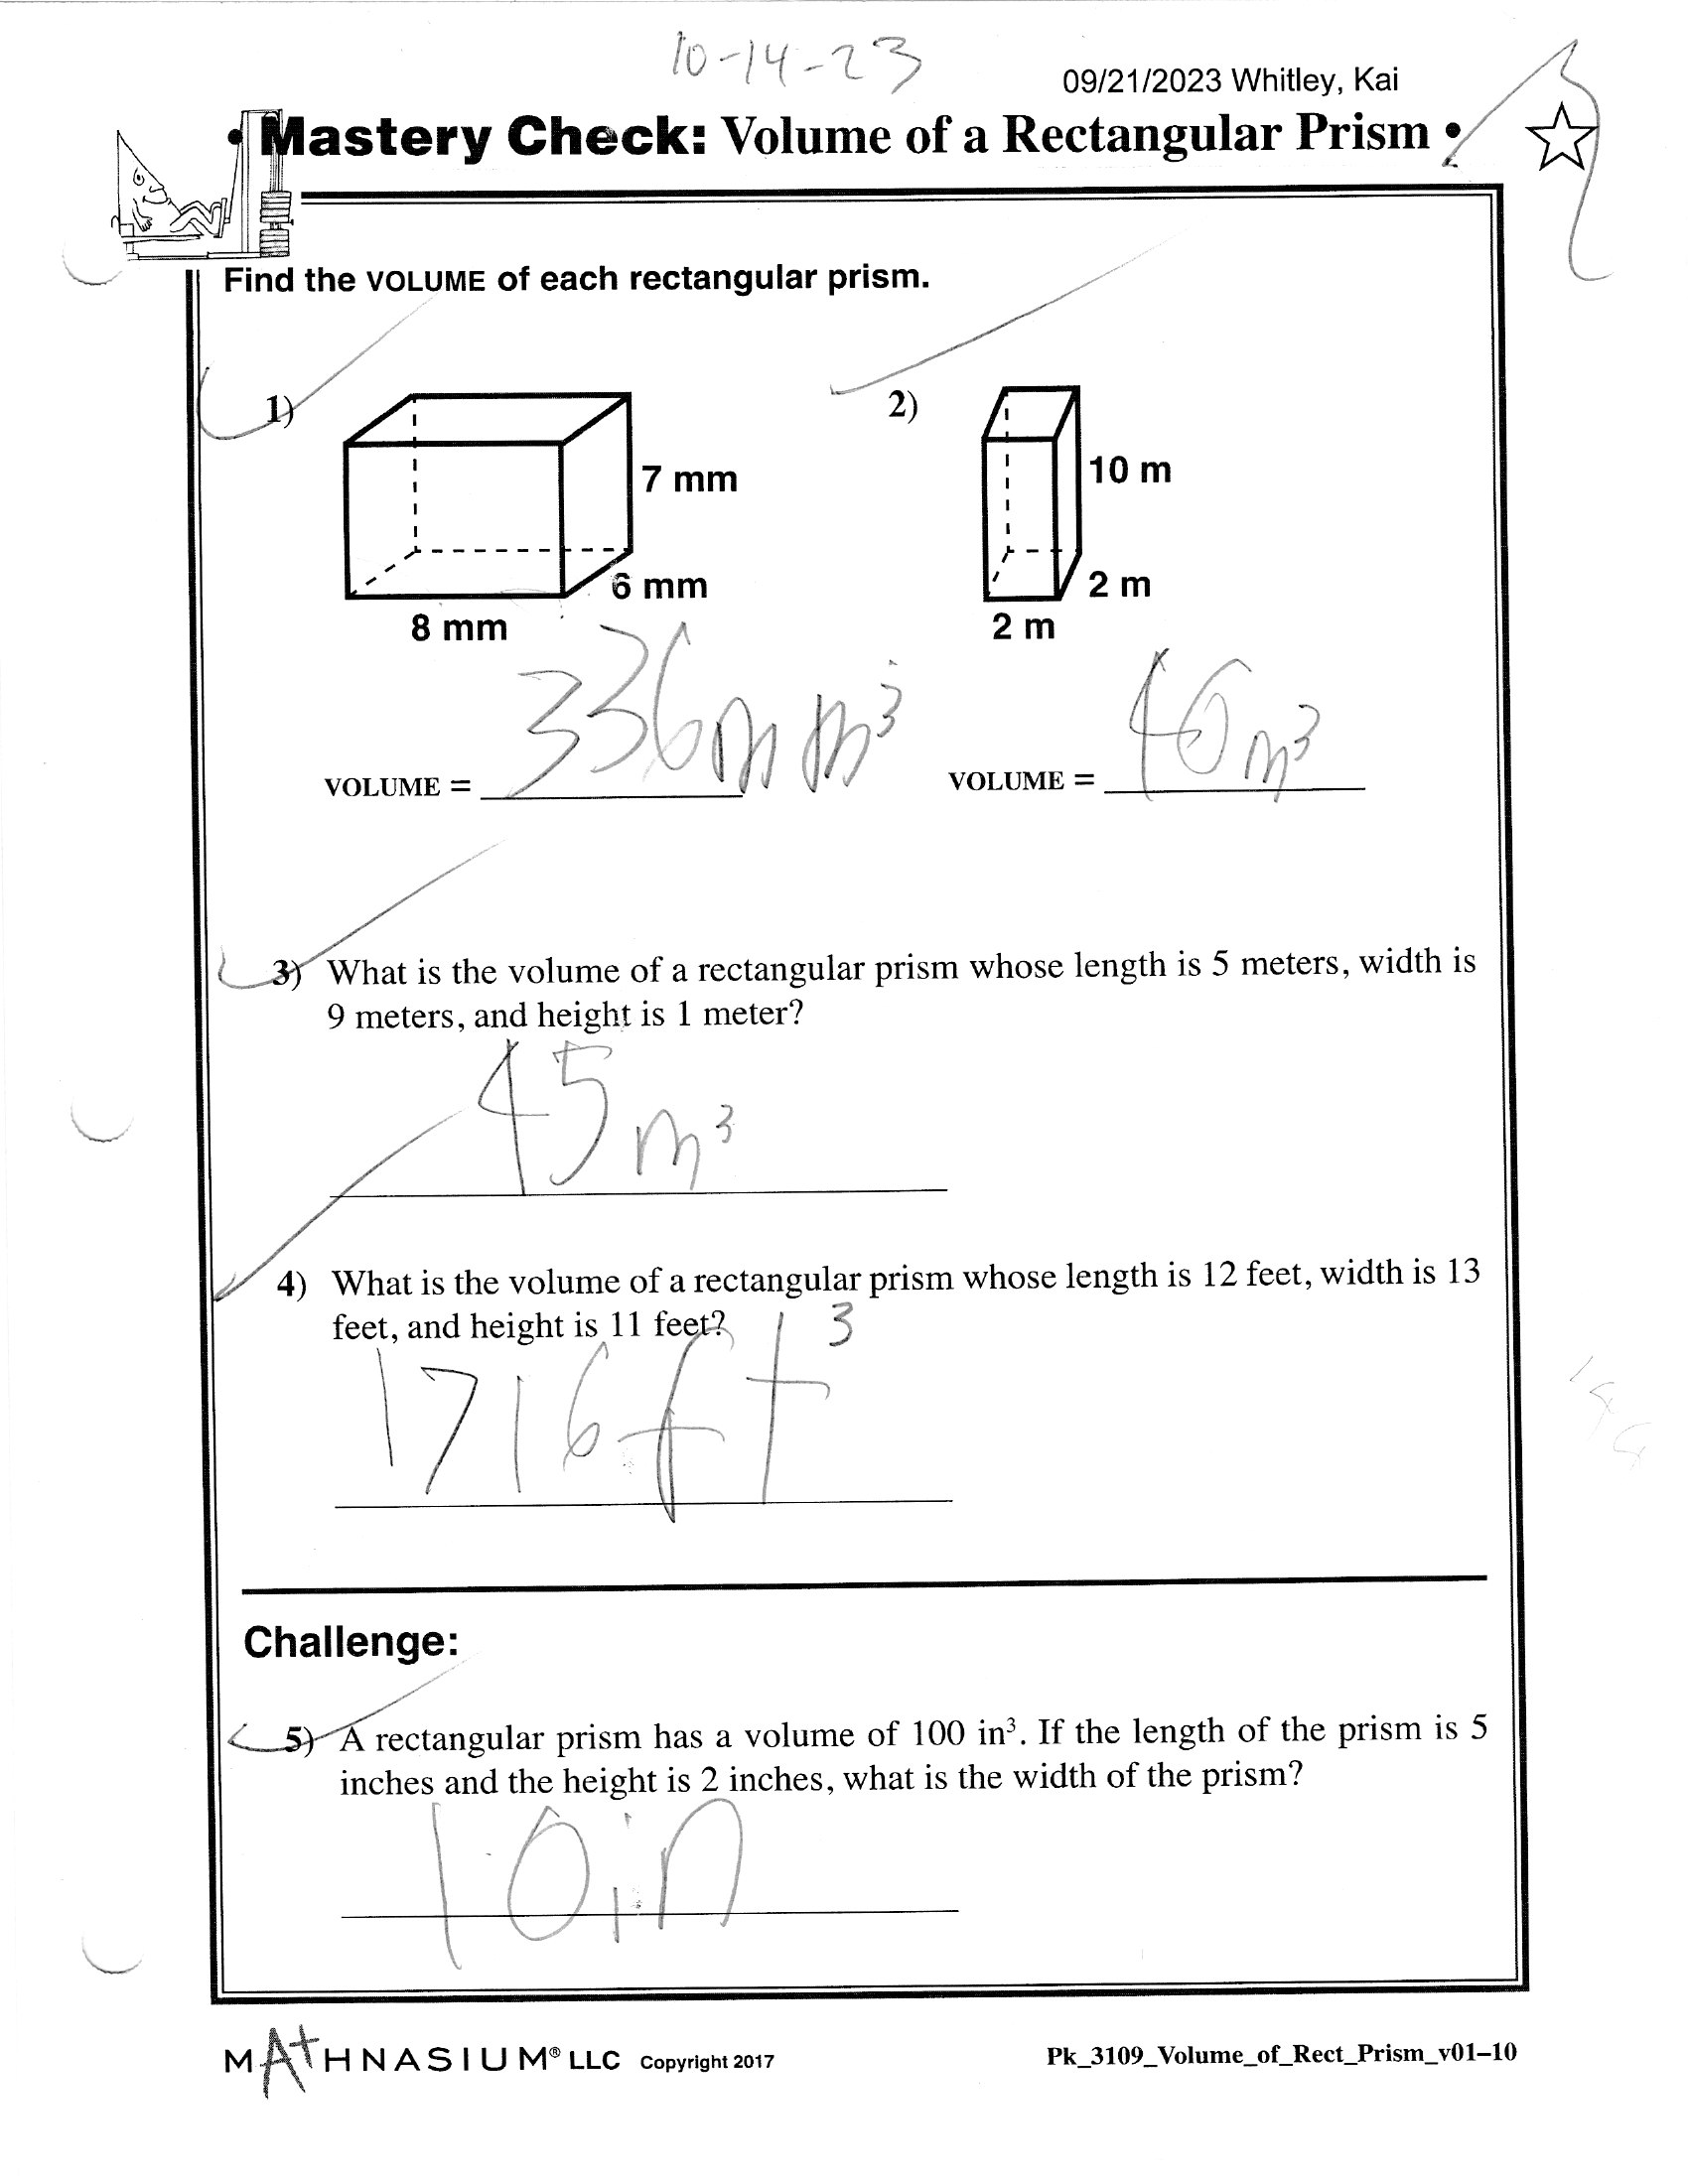 10-14-23
09/21/2023 Whitley, Kai
• Mastery Check: Volume of a Rectangular Prism •
Find the VOLUME of each rectangular prism.
1)
7 mm
6 mm
8 mm
VOLUME = 336mm³
2)
10 m
2 m
2 m
VOLUME = 40m³
3) What is the volume of a rectangular prism whose length is 5 meters, width is
9 meters, and height is 1 meter?
45m³
4) What is the volume of a rectangular prism whose length is 12 feet, width is 13
feet, and height is 11 feet?
1716ft³
Challenge:
5) A rectangular prism has a volume of 100 in³. If the length of the prism is 5
inches and the height is 2 inches, what is the width of the prism?
10in
MATHNASIUM® LLC Copyright 2017
Pk_3109_Volume_of_Rect_Prism_v01–10